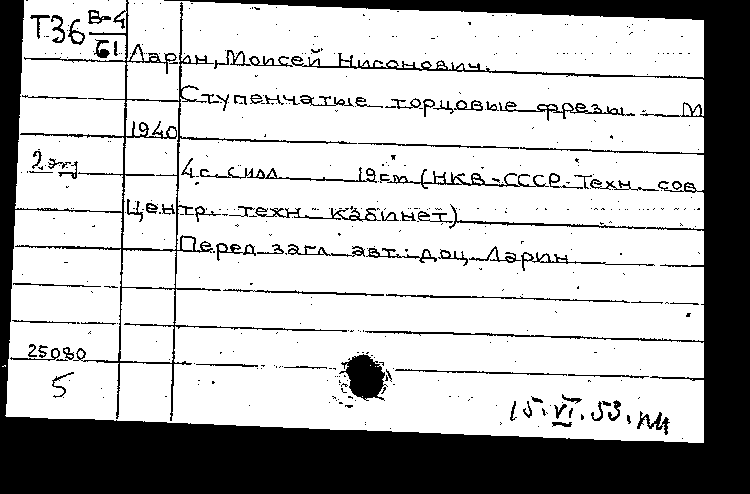 Т36 В-4/61
Ларин, Моисей Нисонович.
Ступенчатые торцовые фрезы. М
1940
2 экз
4 с. с илл. 19 cm (НКВ-СССР. Техн. сов.
Центр. техн. кабинет)
Перед загл. авт.: доц. Ларин
25080
5
15.VI.53.